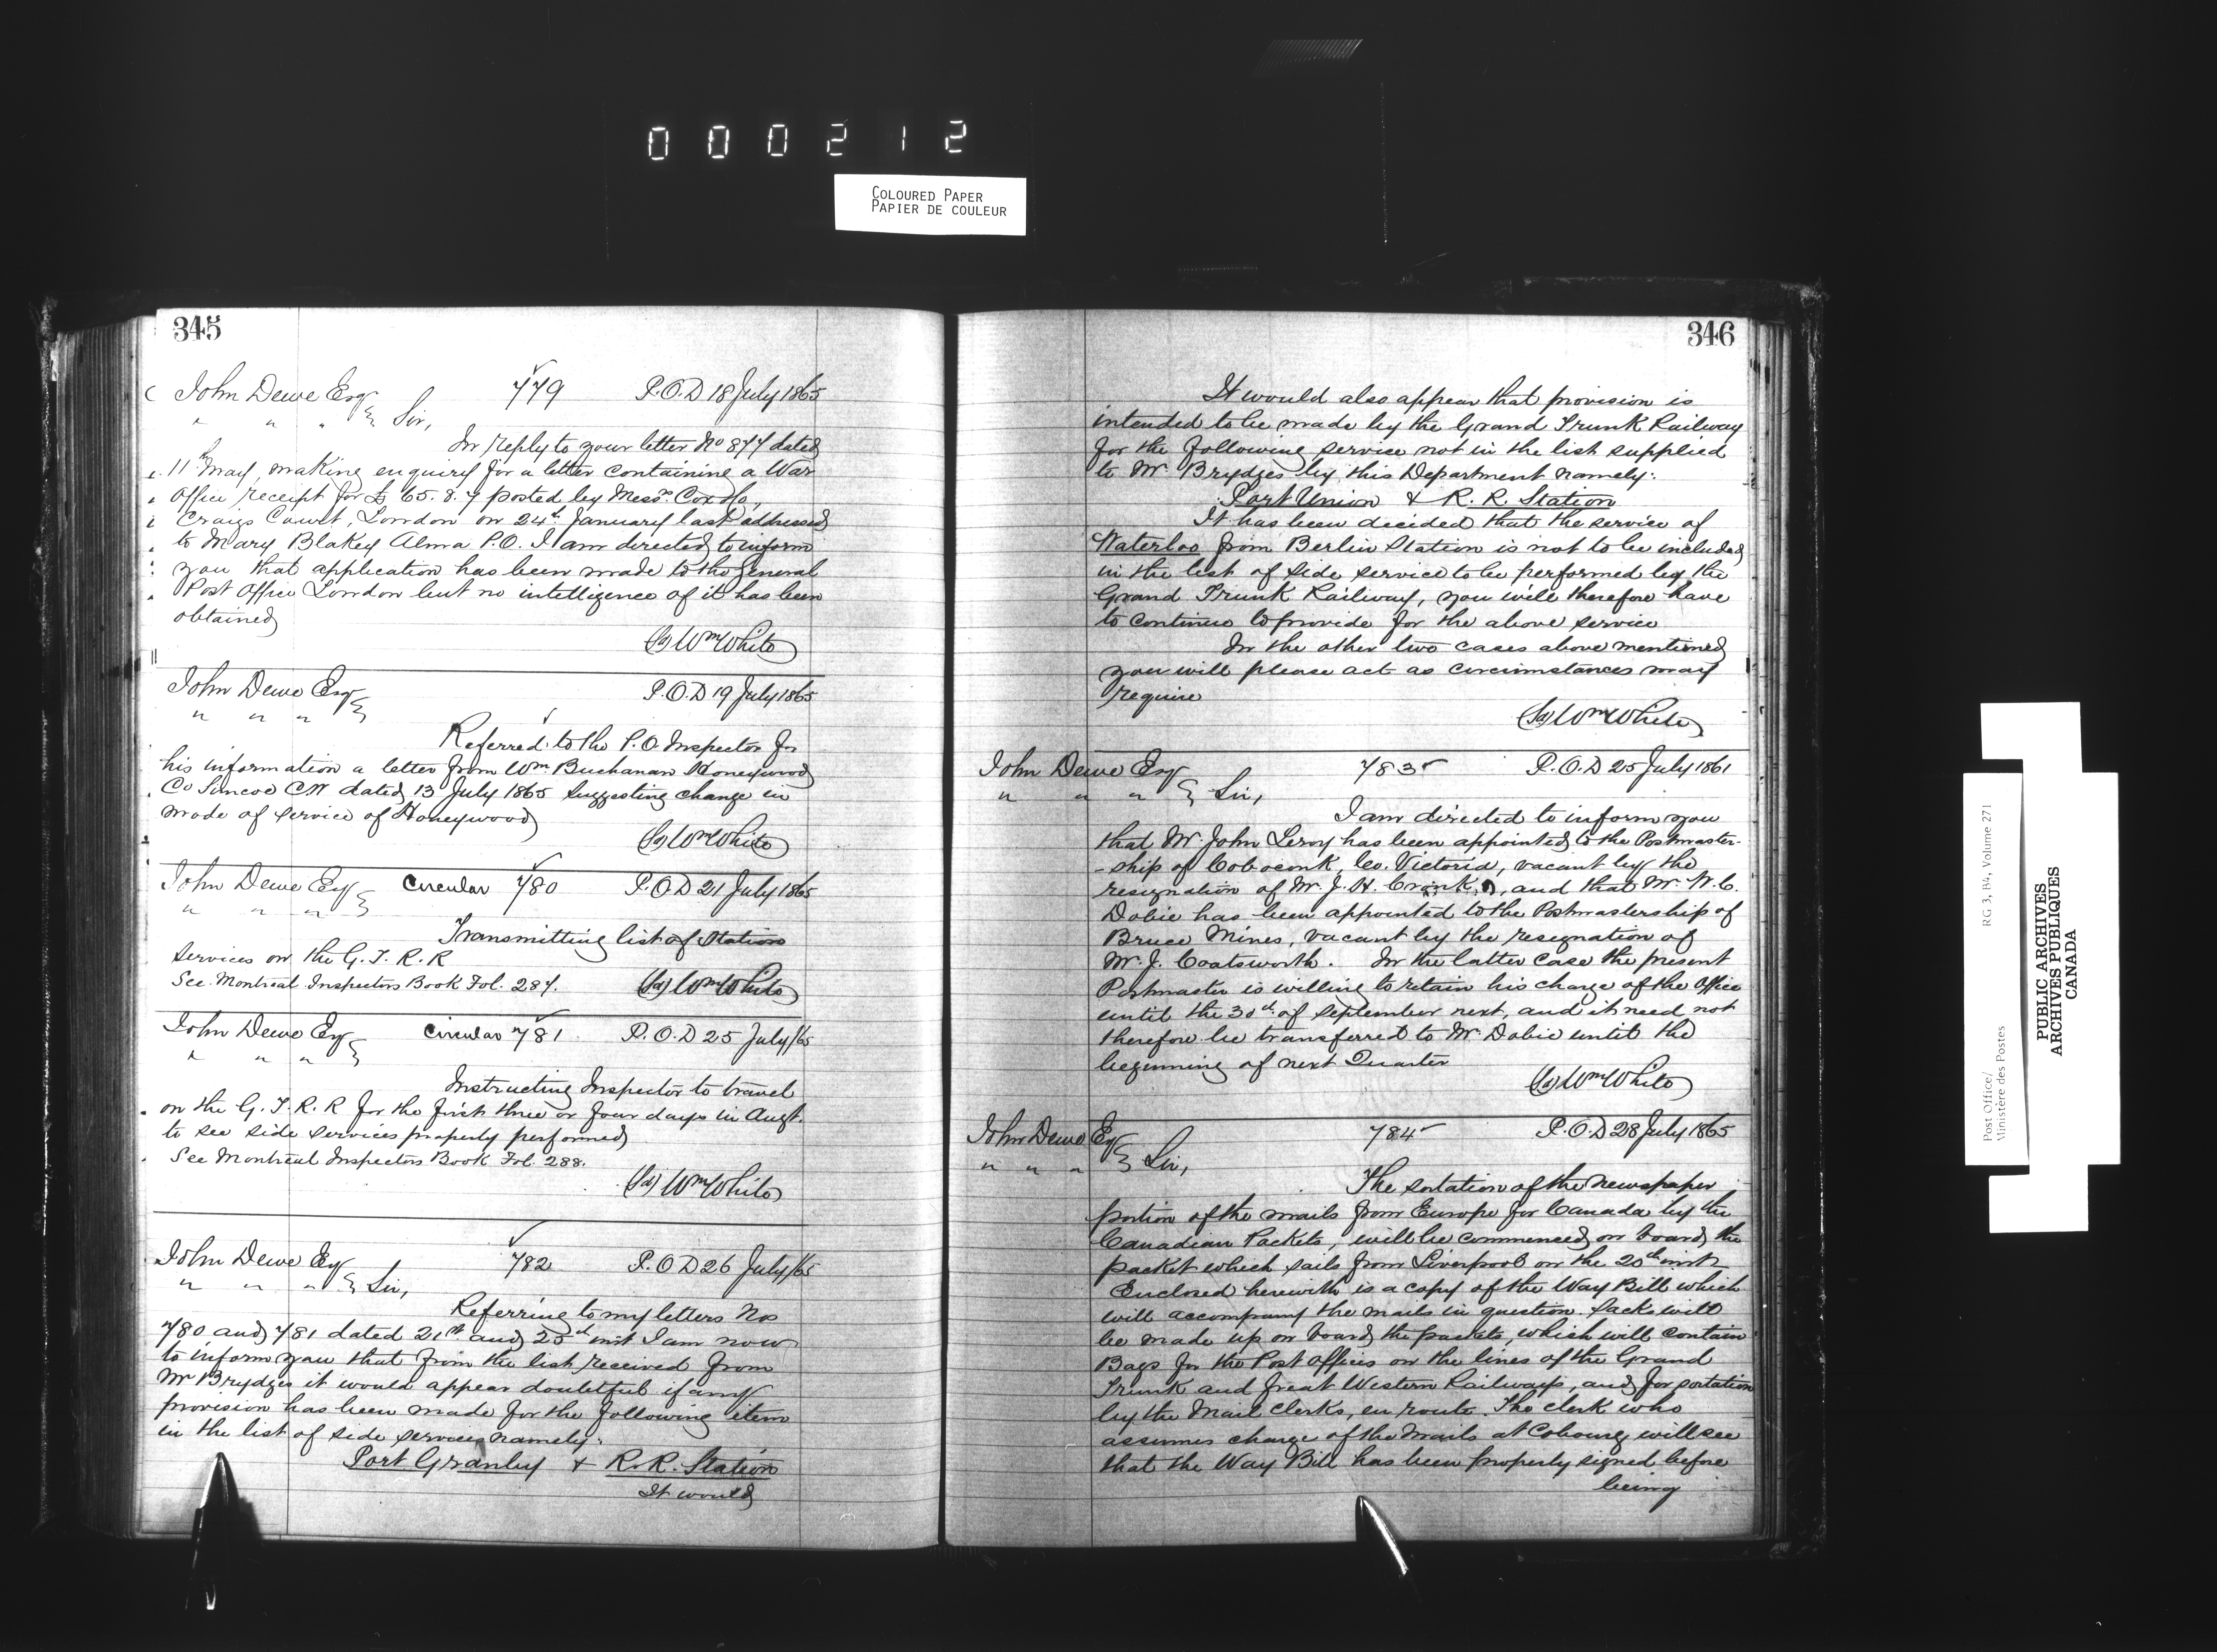 000212
COLOURED PAPER
PAPIER DE COULEUR
345
John Dewe Esq 779 P.O.D 18 July 1865
" " " Sir,
In reply to your letter No 877 dated
11th May, making enquiry for a letter containing a War
Office receipt for £65.8.7 posted by Messrs. Cox & Co,
Craigs Court, London on 24th January last addressed
to Mary Blakey Alma P.O. I am directed to inform
you that application has been made to the General
Post Office London but no intelligence of it has been
obtained
(Sd) Wm White
John Dewe Esq P.O.D 19 July 1865
" " "
Referred to the P.O. Inspector for
his information a letter from Wm. Buchanan Honeywood
Co Simcoe CW dated 13 July 1865 suggesting change in
mode of service of Honeywood
(Sd) Wm White
John Dewe Esq Circular 780 P.O.D 21 July 1865
" " "
Transmitting list of Station
services on the G.T.R.R
See Montreal Inspectors Book Fol. 287. (Sd) Wm White
John Dewe Esq Circular 781 P.O.D 25 July/65
" " "
Instructing Inspector to travel
on the G.T.R.R for the first three or four days in Augt.
to see side services properly performed
See Montreal Inspectors Book Fol. 288.
(Sd) Wm White
John Dewe Esq 782 P.O.D 26 July/65
" " " Sir,
Referring to my letters Nos
780 and 781 dated 21st and 25th inst I am now
to inform you that from the list received from
Mr Brydges it would appear doubtful if any
provision has been made for the following item
in the list of side services namely:
Port Granby & R.R. Station
It would
346
It would also appear that provision is
intended to be made by the Grand Trunk Railway
for the following service not in the list supplied
to Mr. Brydges by this Department namely:
Port Union & R.R. Station
It has been decided that the service of
Waterloo from Berlin Station is not to be included
in the list of side service to be performed by the
Grand Trunk Railway, you will therefore have
to continue to provide for the above service
In the other two cases above mentioned
you will please act as circumstances may
require
(Sd) Wm White
John Dewe Esq 783 P.O.D 25 July 1861
" " " Sir,
I am directed to inform you
that Mr. John Leroy has been appointed to the Postmaster-
-ship of Coboconk, Co. Victoria, vacant by the
resignation of Mr. J. H. Cronk, and that Mr. W. C.
Dobie has been appointed to the Postmastership of
Bruce Mines, vacant by the resignation of
Mr. J. Coatsworth. In the latter case the present
Postmaster is willing to retain his charge of the Office
until the 30th of September next, and it need not
therefore be transferred to Mr. Dobie until the
beginning of next Quarter
(Sd) Wm White
John Dewe Esq 784 P.O.D 28 July 1865
" " " Sir,
The sortation of the newspaper
portion of the mails from Europe for Canada by the
Canadian Packets, will be commenced on board the
packet which sails from Liverpool on the 20th inst
Enclosed herewith is a copy of the Way Bill which
will accompany the mails in question. Sacks will
be made up on board the packets, which will contain
Bags for the Post Offices on the lines of the Grand
Trunk and Great Western Railways, and for sortation
by the Mail Clerks, en route. The clerk who
assumes charge of the Mails at Cobourg will see
that the Way Bill has been properly signed before
being
Post Office/
Ministère des Postes
RG 3, B4, Volume 271
PUBLIC ARCHIVES
ARCHIVES PUBLIQUES
CANADA